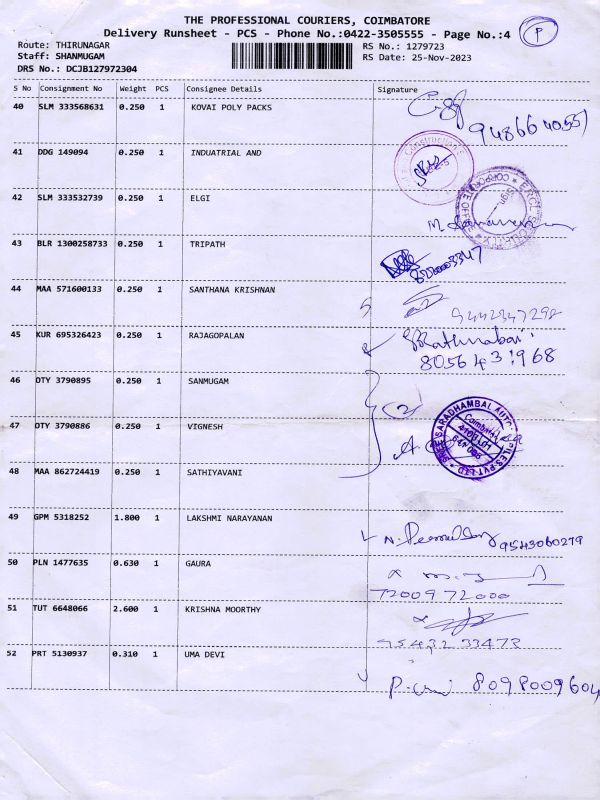 THE PROFESSIONAL COURIERS, COIMBATORE
Delivery Runsheet - PCS - Phone No.:0422-3505555 - Page No.:4
P
Route: THIRUNAGAR
RS No.: 1279723
Staff: SHANMUGAM
RS Date: 25-Nov-2023
DRS No.: DCJB127972304
S No Consignment No Weight PCS Consignee Details Signature
40 SLM 333568631 0.250 1 KOVAI POLY PACKS
41 DDG 149094 0.250 1 INDUATRIAL AND
42 SLM 333532739 0.250 1 ELGI
43 BLR 1300258733 0.250 1 TRIPATH
44 MAA 571600133 0.250 1 SANTHANA KRISHNAN
9442347298
45 KUR 695326423 0.250 1 RAJAGOPALAN
8056431968
46 OTY 3790895 0.250 1 SANMUGAM
47 OTY 3790886 0.250 1 VIGNESH
48 MAA 862724419 0.250 1 SATHIYAVANI
49 GPM 5318252 1.800 1 LAKSHMI NARAYANAN
9543060279
50 PLN 1477635 0.630 1 GAURA
7200972000
51 TUT 6648066 2.600 1 KRISHNA MOORTHY
9543233473
52 PRT 5130937 0.310 1 UMA DEVI
8098009604